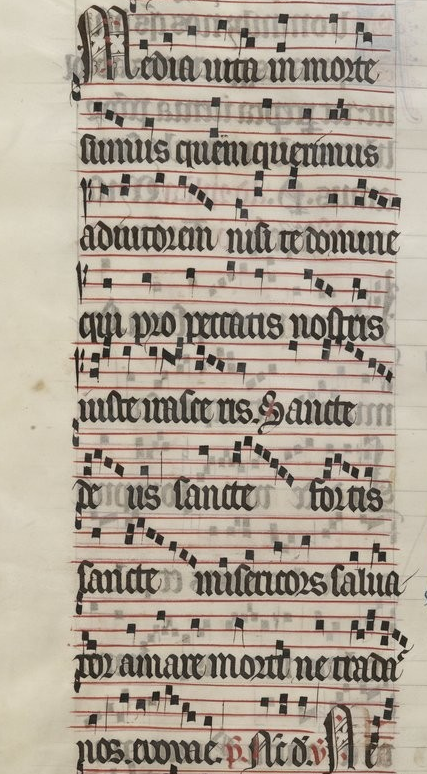 Media uita in morte
sumus quem querimus
adiutorem nisi te domine
qui pro peccatis nostris
iuste irasce ris. Sancte
de us sancte fortis
sancte misericors salua
tor amare morti ne trada
nos. euouae. p̄. Nc̄ d. v